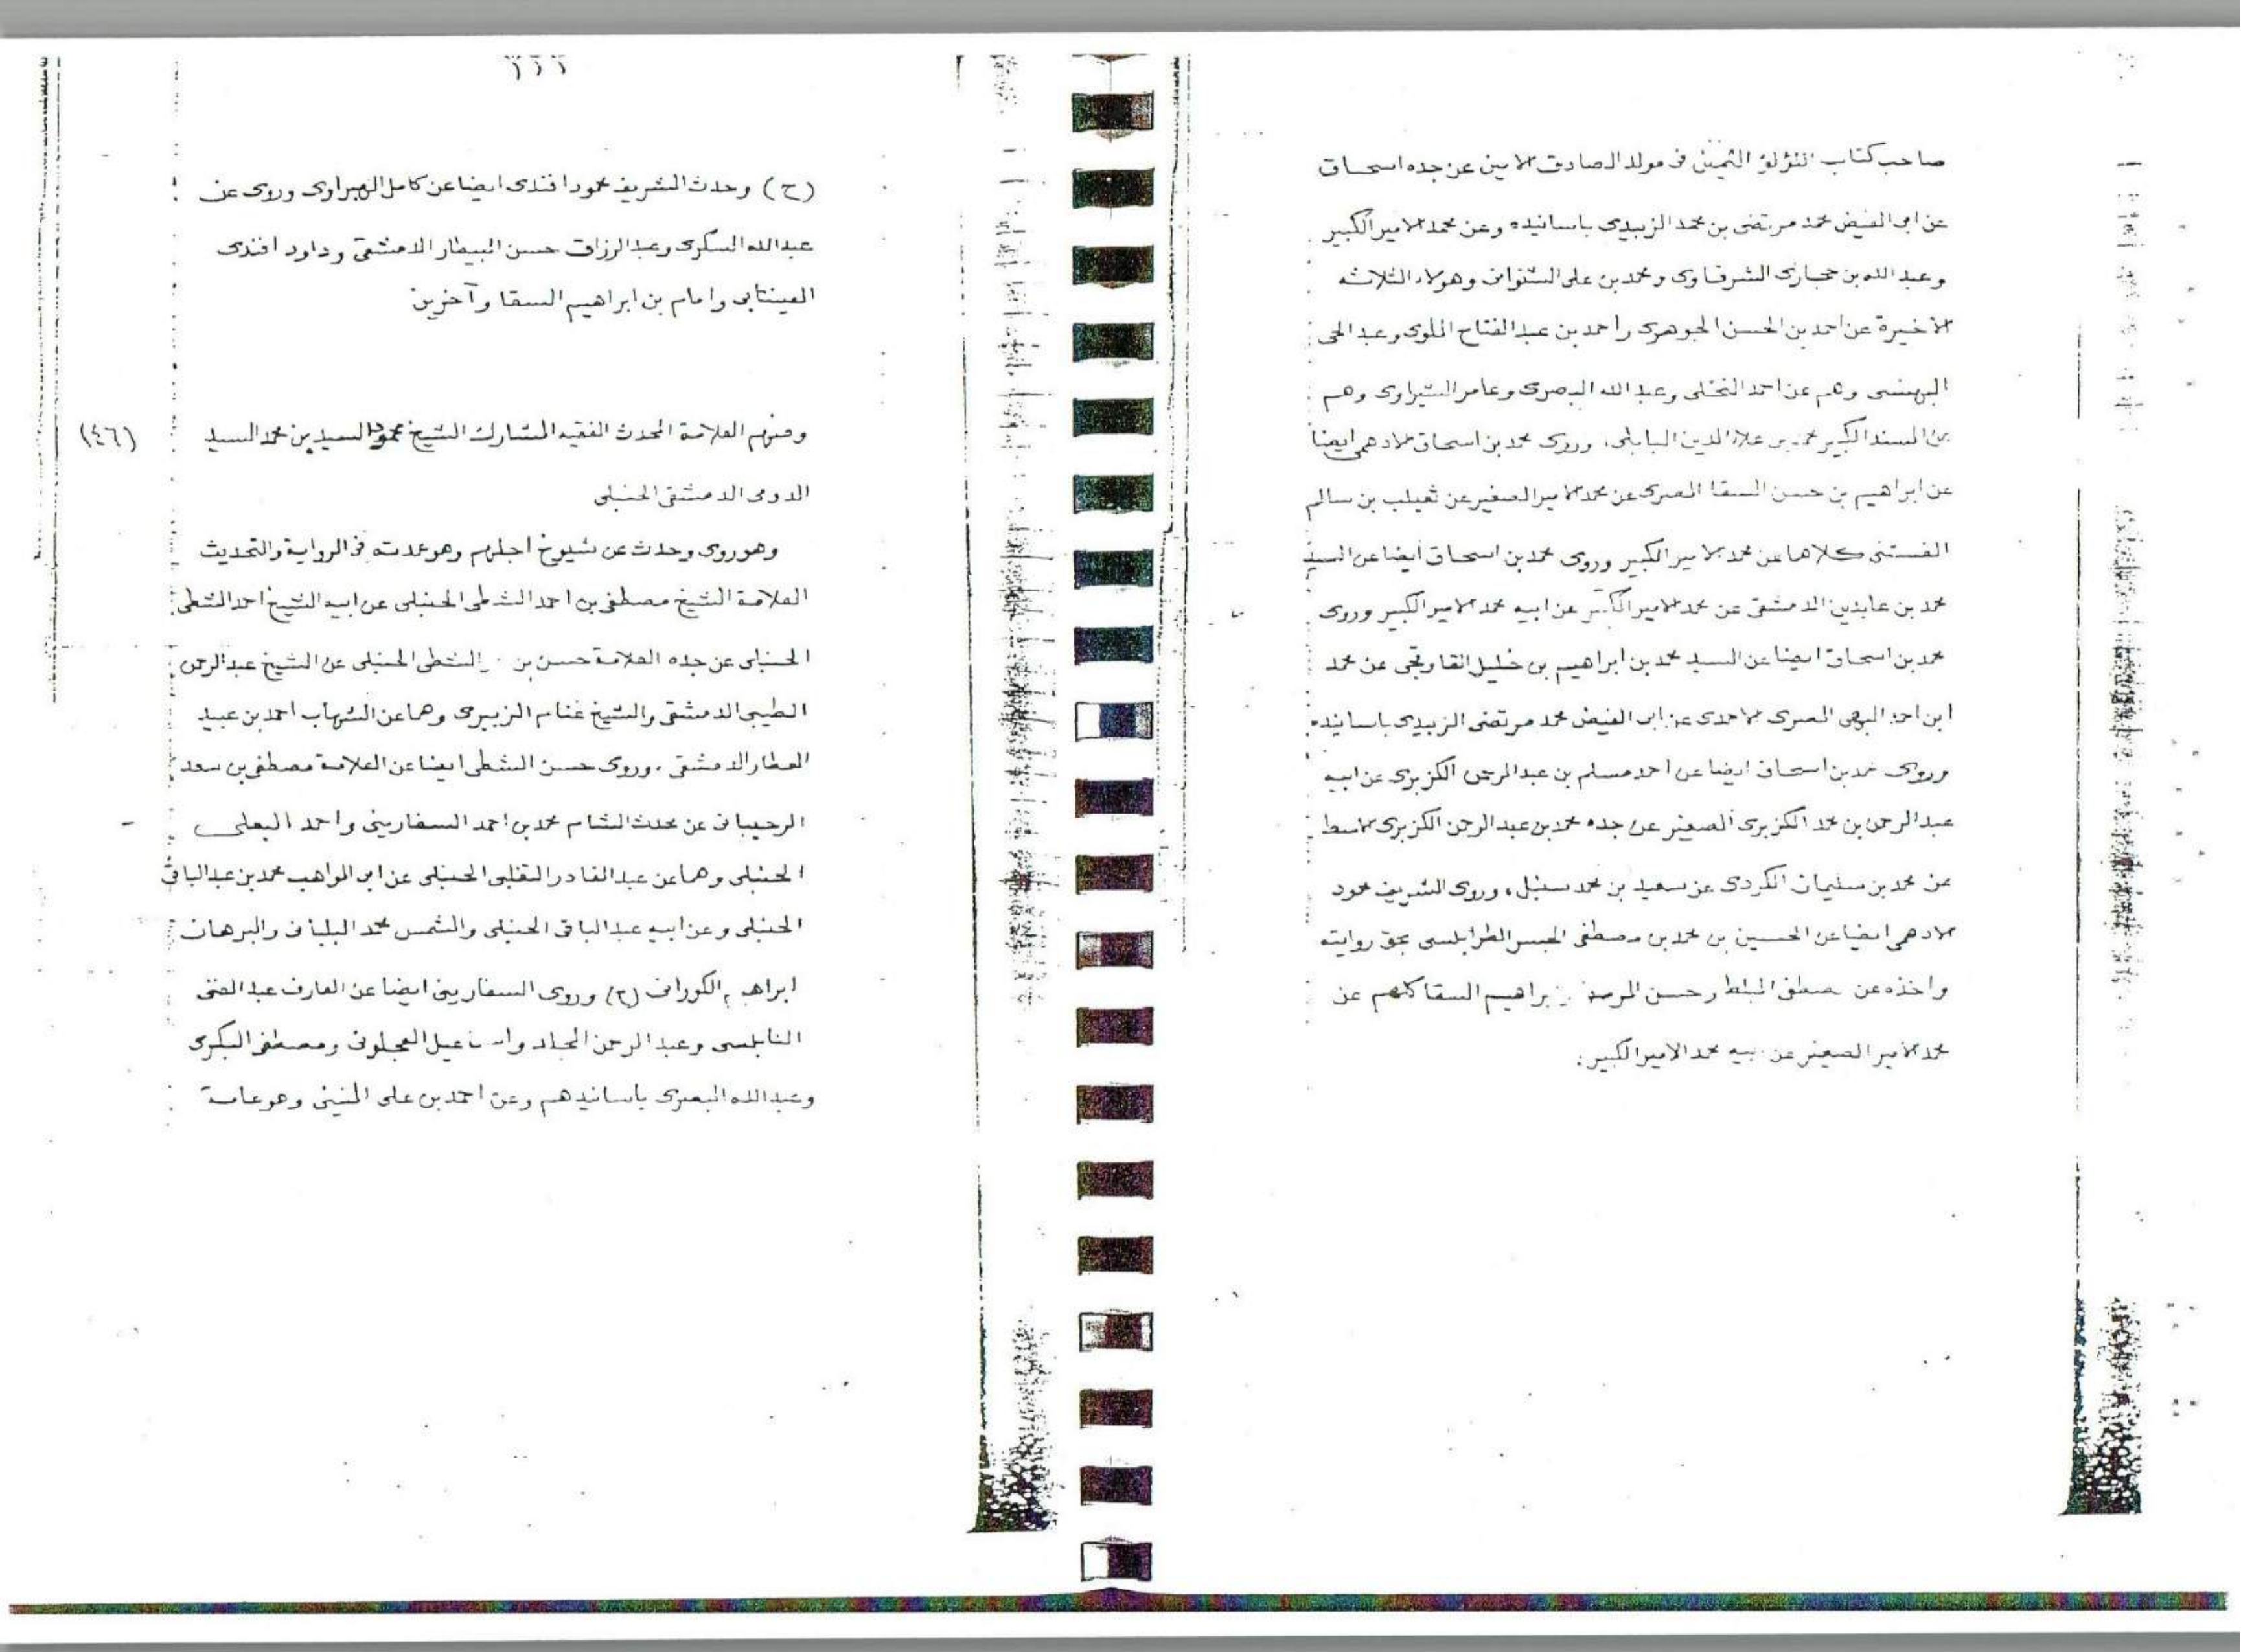 صاحب كتاب اللؤلؤ الثمين فى مولد الصادق الامين عن جده اسحاق
عن ابى الفيض محمد مرتضى بن محمد الزبيدى باسانيده وعن محمد الامير الكبير
وعبد الله بن حجازى الشرقاوى ومحمد بن على الشنوانى وهولاء الثلاثه
الاخيرة عن احمد بن الحسن الجوهرى واحمد بن عبد الفتاح الملوى وعبد الحى
البهنسى وهم عن احمد النخلى وعبد الله البصرى وعامر الشبراوى وهم
عن المسند الكبير محمد بن علاء الدين البابلى، وروى محمد بن اسحاق الادهمى ايضا
عن ابراهيم بن حسن السقا المصرى عن محمد الامير الصغير عن ثعيلب بن سالم
الفستنى كلاهما عن محمد الامير الكبير وروى محمد بن اسحاق ايضا عن السيد
محمد بن عابدين الدمشقى عن محمد الامير الكبير عن ابيه محمد الامير الكبير وروى
محمد بن اسحاق ايضا عن السيد محمد بن ابراهيم بن خليل القاوقجى عن محمد
ابن احمد البهى المصرى الاحمدى عن ابى الفيض محمد مرتضى الزبيدى باسانيده
وروى محمد بن اسحاق ايضا عن احمد مسلم بن عبد الرحمن الكزبرى عن ابيه
عبد الرحمن بن محمد الكزبرى الصغير عن جده محمد بن عبد الرحمن الكزبرى الاسط
عن محمد بن سليمان الكردى عن سعيد بن محمد سنبل، وروى الشريف محمود
الادهمى ايضا عن الحسين بن محمد بن مصطفى الجسر الطرابلسى بحق روايته
واخذه عن مصطفى المبلط وحسن المرصفى وابراهيم السقا كلهم عن
محمد الامير الصغير عن ابيه محمد الامير الكبير.
(ح) وحدث الشريف محمود افندى ايضا عن كامل الهبراوى وروى عن
عبد الله السكرى وعبد الرزاق حسن البيطار الدمشقى وداود افندى
العينتابى وامام بن ابراهيم السقا وآخرين
(٤٦) ومنهم العلامة المحدث الفقيه المشارك الشيخ محمود السيد بن محمد السيد
الدومى الدمشقى الحنبلى
وهو روى وحدث عن شيوخ اجلهم وهو عمدته فى الرواية والتحديث
العلامة الشيخ مصطفى بن احمد الشطى الحنبلى عن ابيه الشيخ احمد الشطى
الحنبلى عن جده العلامة حسن بن الشطى الحنبلى عن الشيخ عبد الرحمن
الطيبى الدمشقى والشيخ غنام الزبيرى وهما عن الشهاب احمد بن عبيد
العطار الدمشقى. وروى حسن الشطى ايضا عن العلامة مصطفى بن سعد
الرحيبانى عن محدث الشام محمد بن احمد السفارينى واحمد البعلى
الحنبلى وهما عن عبد القادر التغلبى الحنبلى عن ابى المواهب محمد بن عبد الباقى
الحنبلى وعن ابيه عبد الباقى الحنبلى والشمس محمد البلبانى والبرهان
ابراهيم الكورانى (ح) وروى السفارينى ايضا عن العارف عبد الغنى
النابلسى وعبد الرحمن المجلد واسماعيل العجلونى ومصطفى البكرى
وعبد الله البصرى باسانيدهم وعن احمد بن على المنينى وهو عاسة